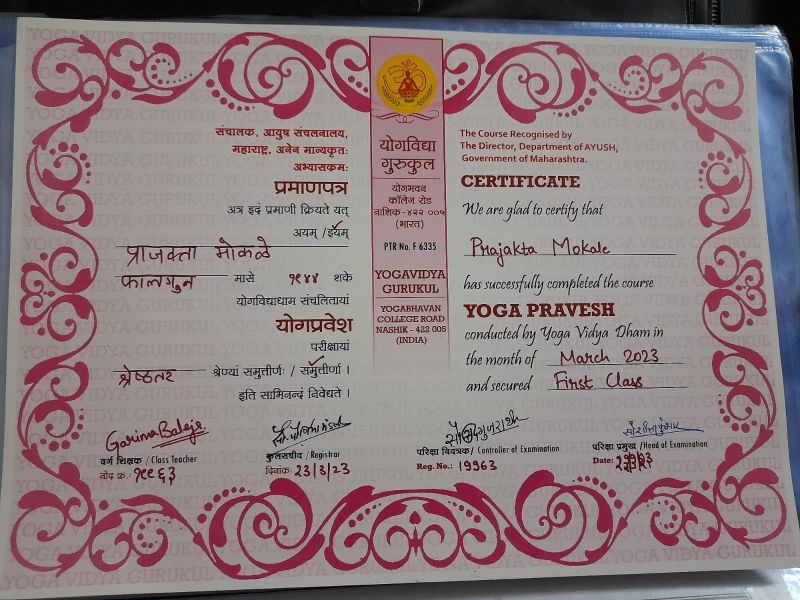 संचालक, आयुष संचलनालय,
महाराष्ट्र, अनेन मान्यकृतः
अभ्यासक्रमः
प्रमाणपत्र
अत्र इदं प्रमाणी क्रियते यत्
अयम् /इयम्
प्राजक्ता मोकळे
फाल्गुन मासे १९४४ शके
योगविद्याधाम संचलितायां
योगप्रवेश
परीक्षायां
श्रेष्ठतर श्रेण्यां समुत्तीर्णः / समुत्तीर्णा ।
इति साभिनन्दं निवेद्यते ।
योगविद्या
गुरुकुल
योगभवन
कॉलेज रोड
नाशिक-४२२ ००५
(भारत)
PTR No. F 6335
YOGAVIDYA
GURUKUL
YOGABHAVAN
COLLEGE ROAD
NASHIK - 422 005
(INDIA)
The Course Recognised by
The Director, Department of AYUSH,
Government of Maharashtra.
CERTIFICATE
We are glad to certify that
Prajakta Mokale
has successfully completed the course
YOGA PRAVESH
conducted by Yoga Vidya Dham in
the month of March 2023
and secured First Class
वर्ग शिक्षक / Class Teacher
नोंद क्र.: १९९६३
कुलसचीव / Registrar
दिनांक: 23/3/23
परिक्षा नियंत्रक/ Controller of Examination
Reg. No.: 19963
परिक्षा प्रमुख /Head of Examination
Date:
YOGA VIDYA GURUKUL